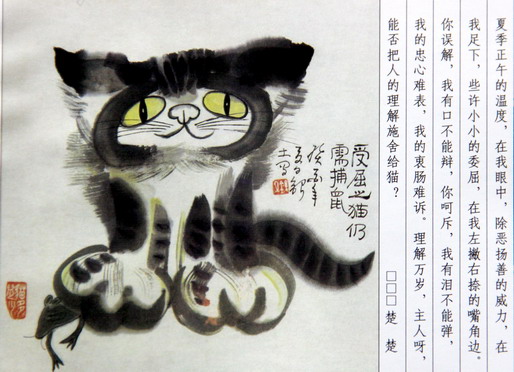 夏季正午的温度，在我眼中，除恶扬善的威力，在
我足下，些许小小的委屈，在我左撇右捺的嘴角边。
你误解，我有口不能辩，你呵斥，我有泪不能弹，
我的忠心难表，我的衷肠难诉。理解万岁，主人呀，
能否把人的理解施舍给猫？ □□□楚 楚
受屈之猫仍
需捕鼠